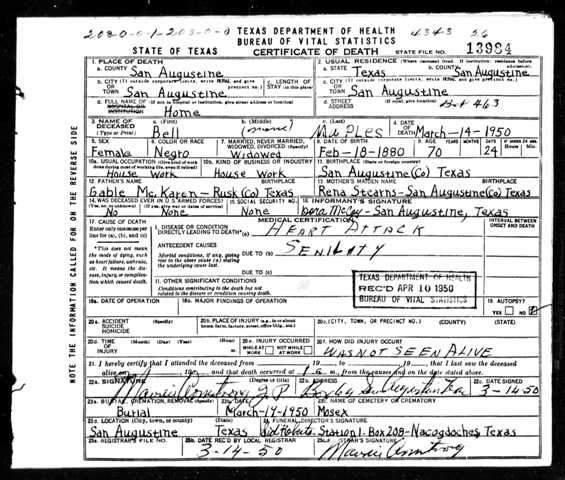 2080-0-1-203-0-0 TEXAS DEPARTMENT OF HEALTH 4343 56
BUREAU OF VITAL STATISTICS
STATE OF TEXAS CERTIFICATE OF DEATH STATE FILE NO. 13984
1. PLACE OF DEATH 2. USUAL RESIDENCE (Where deceased lived. If institution: residence before admission).
a. COUNTY San Augustine a. STATE Texas b. COUNTY San Augustine
b. CITY (If outside corporate limits, write RURAL and give precinct no.) c. LENGTH OF STAY (in this place) c. CITY (If outside corporate limits, write RURAL and give precinct no.)
OR TOWN San Augustine OR TOWN San Augustine
d. FULL NAME OF (If not in hospital or institution, give street address or location) d. STREET ADDRESS (If rural, give location) Box 463
HOSPITAL OR INSTITUTION Home
3. NAME OF DECEASED (Type or Print) a. (First) b. (Middle) c. (Last) 4. DATE OF DEATH
Bell (none) March-14-1950
5. SEX 6. COLOR OR RACE 7. MARRIED, NEVER MARRIED, WIDOWED, DIVORCED (Specify) 8. DATE OF BIRTH 9. AGE YEARS MONTHS DAYS
Female Negro Widowed Feb-18-1880 70 24
10a. USUAL OCCUPATION (Give kind of work done during most of working life, even if retired) 10b. KIND OF BUSINESS OR INDUSTRY 11. BIRTHPLACE (State or foreign country)
House Work House Work San Augustine(Co) Texas
12. FATHER'S NAME BIRTHPLACE 13. MOTHER'S MAIDEN NAME BIRTHPLACE
Gable Mc.Karen-Rusk(Co) Texas Rena Stearns-San Augustine(Co) Texas
14. WAS DECEASED EVER IN U.S. ARMED FORCES? 15. SOCIAL SECURITY NO. 16. INFORMANT'S SIGNATURE
(Yes, no, or unknown) (If yes, give war or dates of service)
No None None McCoy-San Augustine, Texas
17. CAUSE OF DEATH MEDICAL CERTIFICATION INTERVAL BETWEEN ONSET AND DEATH
Enter only one cause per line for (a), (b), and (c)
I. DISEASE OR CONDITION DIRECTLY LEADING TO DEATH*(a) HEART ATTACK
*This does not mean the mode of dying, such as heart failure, asthenia, etc. It means the disease, injury, or complication which caused death.
ANTECEDENT CAUSES
Morbid conditions, if any, giving rise to the above cause (a) stating the underlying cause last.
DUE TO (b) SENILITY
DUE TO (c)
II. OTHER SIGNIFICANT CONDITIONS
Conditions contributing to the death but not related to the disease or condition causing death.
TEXAS DEPARTMENT OF HEALTH
REC'D APR 10 1950
BUREAU OF VITAL STATISTICS
18a. DATE OF OPERATION 18b. MAJOR FINDINGS OF OPERATION 19. AUTOPSY?
YES NO
20a. ACCIDENT SUICIDE HOMICIDE (Specify) 20b. PLACE OF INJURY (e.g., in or about home, farm, factory, street, office bldg., etc.) 20c. (CITY, TOWN, OR PRECINCT NO.) (COUNTY) (STATE)
20d. TIME OF INJURY (Month) (Day) (Year) (Hour) m. 20e. INJURY OCCURRED WHILE AT WORK NOT WHILE AT WORK 20f. HOW DID INJURY OCCUR?
WAS NOT SEEN ALIVE
21. I hereby certify that I attended the deceased from 19 , to 19 , that I last saw the deceased
alive on 19 , and that death occurred at m., from the causes and on the date stated above.
22a. SIGNATURE (Degree or title) 22b. ADDRESS 22c. DATE SIGNED
Armstrong J P San Augustine Tex 3-14-50
23a. BURIAL, CREMATION, REMOVAL (Specify) 23b. DATE 23c. NAME OF CEMETERY OR CREMATORY
Burial March-19-1950 Mosex
23d. LOCATION (City, town, or county) (State) 24. FUNERAL DIRECTOR'S SIGNATURE
San Augustine Texas Sid Roberts Station 1-Box 208-Nacogdoches, Texas
25a. REGISTRAR'S FILE NO. 25b. DATE REC'D BY LOCAL REGISTRAR 25c. REGISTRAR'S SIGNATURE
3-14-50 Armstrong
NOTE THE INFORMATION CALLED FOR ON THE REVERSE SIDE